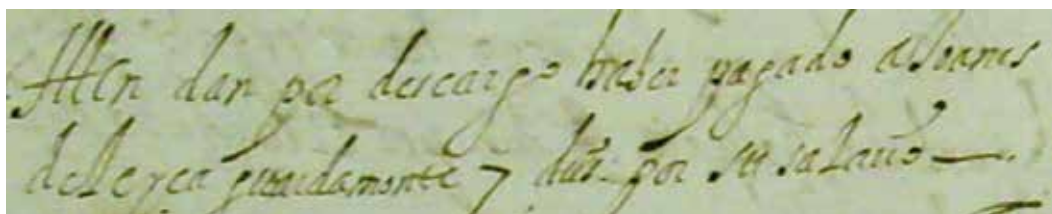 Itten dan por descargo haber pagado a Joanes
de Lecea guardamonte 7 dus por su salario